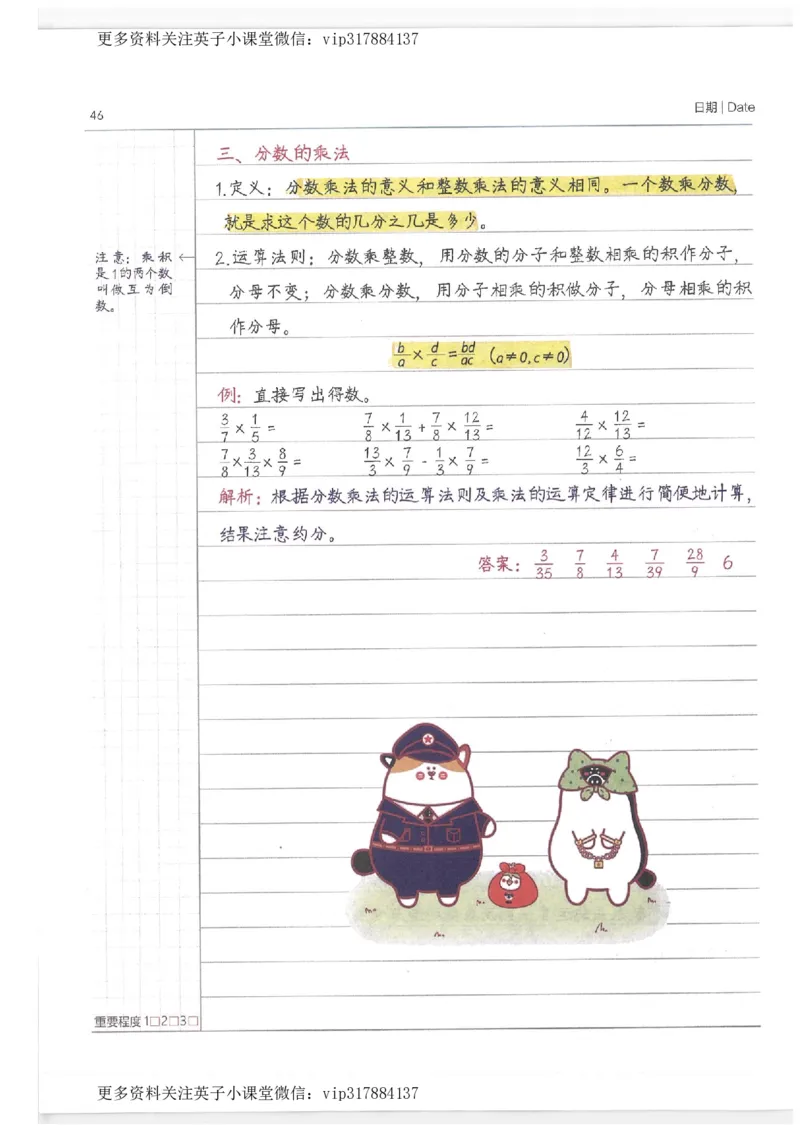 更多资料关注英子小课堂微信：vip317884137
46
日期 | Date
三、分数的乘法
1.定义：分数乘法的意义和整数乘法的意义相同。一个数乘分数，
就是求这个数的几分之几是多少。
注意：乘积←
是1的两个数
叫做互为倒
数。
2.运算法则：分数乘整数，用分数的分子和整数相乘的积作分子，
分母不变；分数乘分数，用分子相乘的积做分子，分母相乘的积
作分母。
b/a × d/c = bd/ac （a≠0,c≠0）
例：直接写出得数。
3/7 × 1/5 = 7/8 × 1/13 + 7/8 × 12/13 = 4/12 × 12/13 =
7/8 × 3/13 × 8/9 = 13/3 × 7/9 - 1/3 × 7/9 = 12/3 × 6/4 =
解析：根据分数乘法的运算法则及乘法的运算定律进行简便地计算，
结果注意约分。
答案：3/35 7/8 4/13 7/39 28/9 6
重要程度 1□2□3□
更多资料关注英子小课堂微信：vip317884137